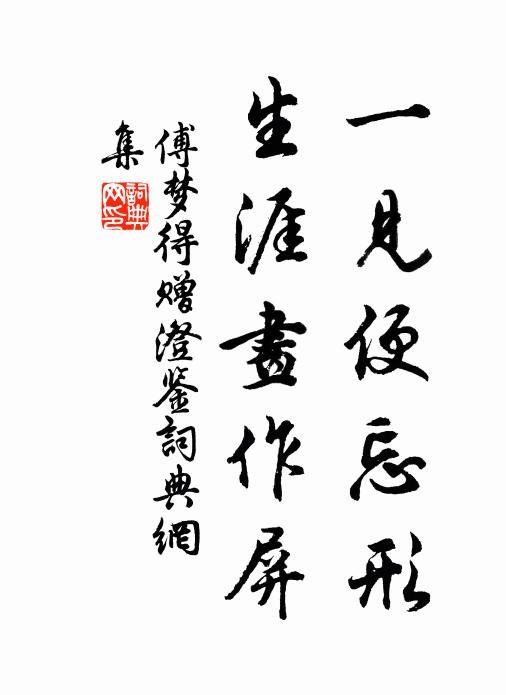 一見便忘形
生涯畫作屏
傅梦得赠澄鉴詞典網
集
詞典
网印